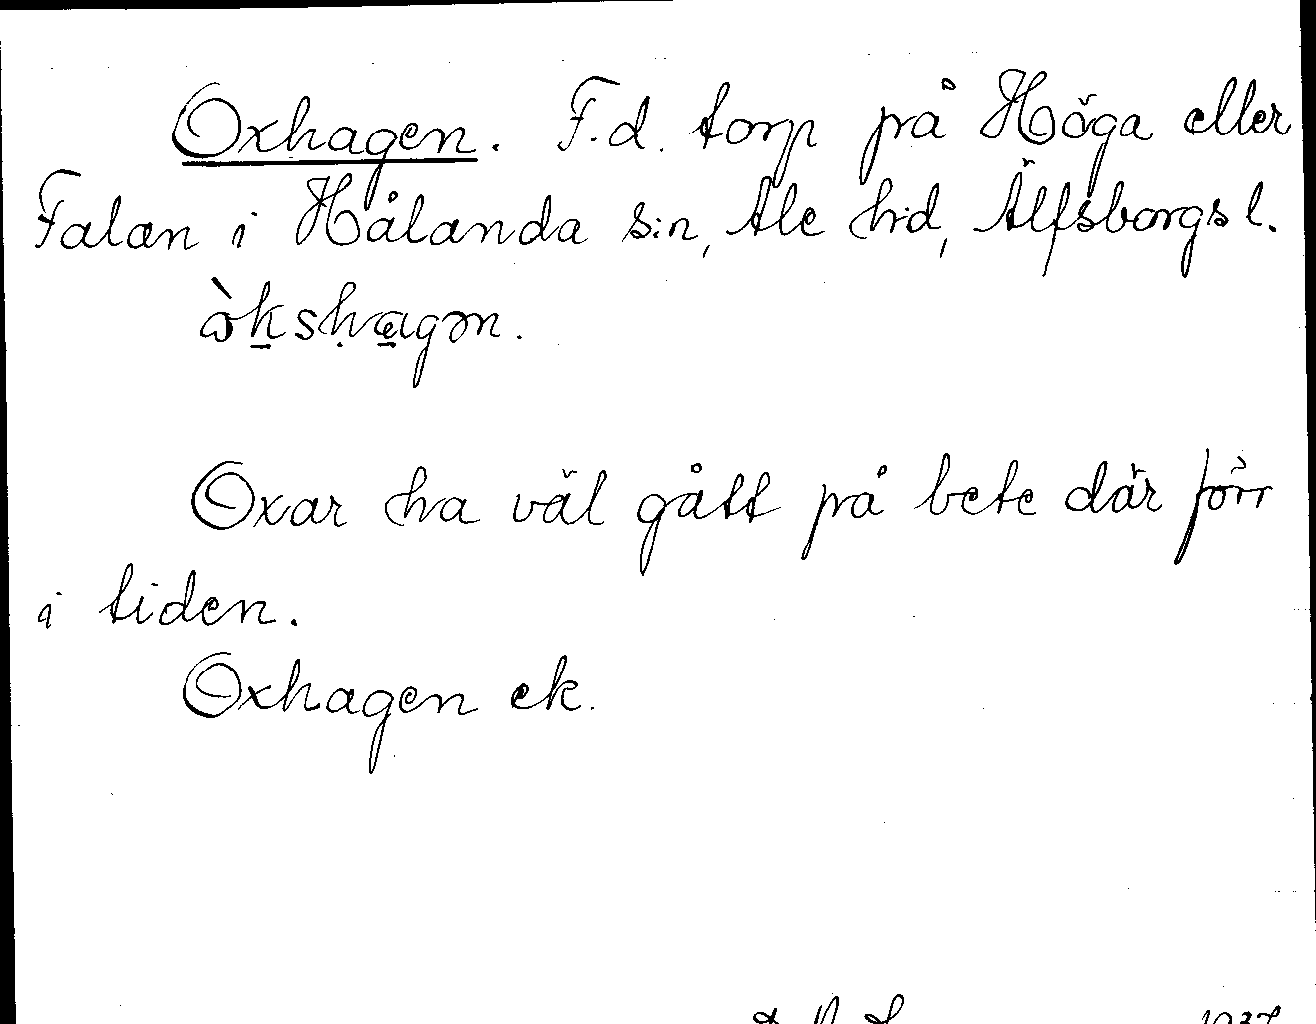 Oxhagen. F.d. torp på Höga eller
Falan i Hålanda s:n, Ale hd, Älfsborgs l.
òkshagən.
Oxar ha väl gått på bete där förr
i tiden.
Oxhagen ek.